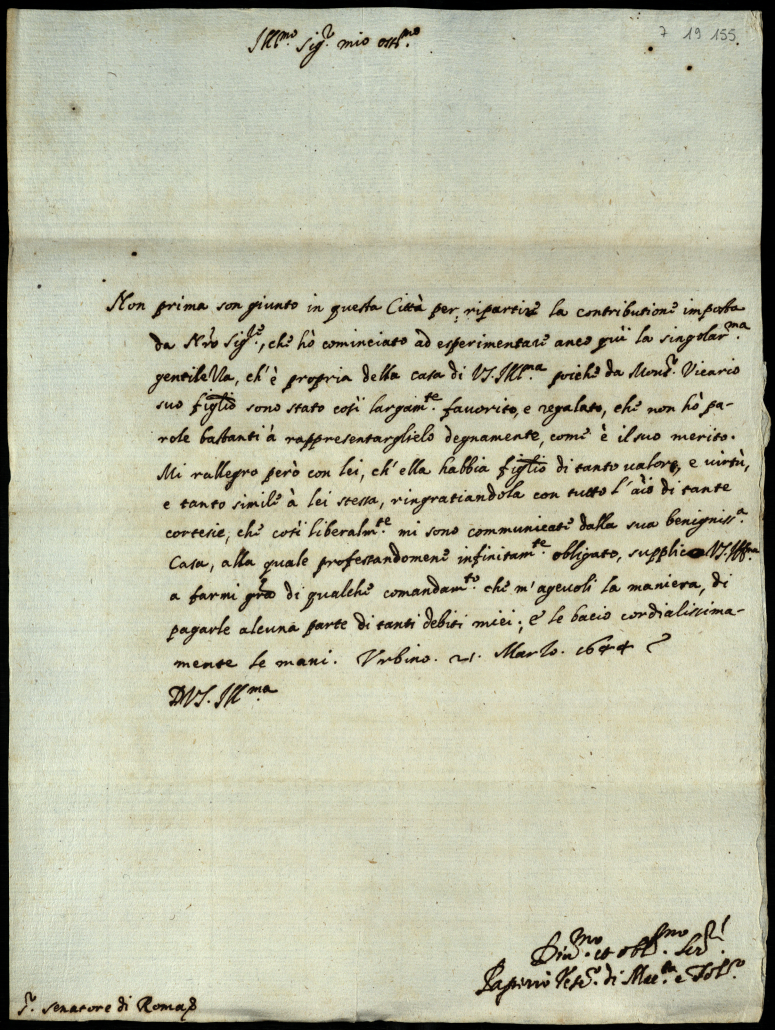 7 19 155
Ill.mo Sig.r mio oss.mo
Non prima son giunto in questa Città per ripartire la contributione imposta
da N'ro Sig.re, che hò cominciato ad esperimentare anco quì la singolar.ma
gentilezza, ch'è propria della casa di V.S. Ill.ma poiche da Mons.r Vicario
suo figlio sono stato così largam.te favorito, e regalato, che non hò pa-
role bastanti à rappresentarglielo degnamente, come è il suo merito.
Mi rallegro però con lei, ch'ella habbia figlio di tanto valore, e virtù,
e tanto simile à lei stessa, ringratiandola con tutto l'aïo di tante
cortesie, che così liberalm.te mi sono communicate dalla sua benigniss.a
Casa, alla quale professandomene infinitam.te obligato, supplico V.S. Ill.ma
a farmi gra di qualche comandam.to che m'agevoli la maniera, di
pagarle alcuna parte di tanti debiti miei; e le bacio cordialissima-
mente le mani. Urbino. 21. Marzo. 1644
D V.S. Ill.ma
Div.mo et obl.mo Ser.
Papirio Vesc.o di Mac.ta e Tol.no
S.r Senatore di Roma